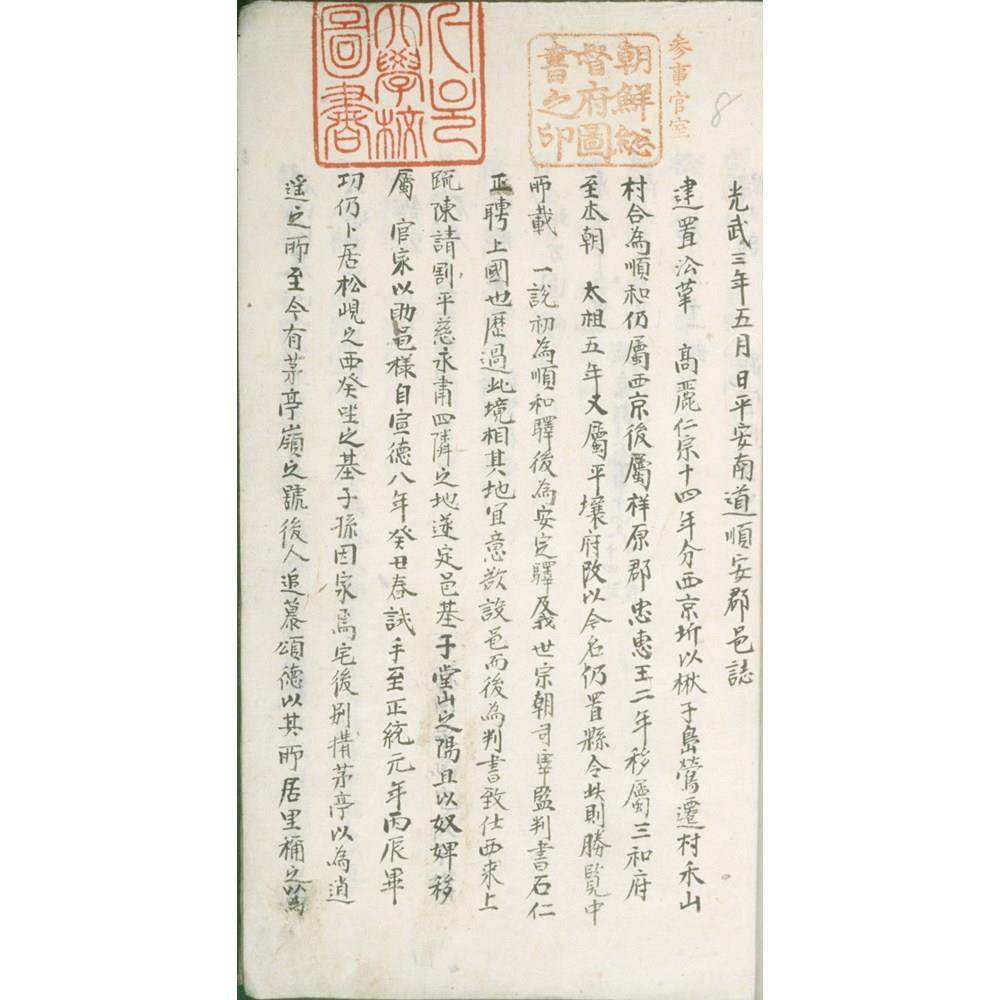 参事官室
朝鮮總督府圖書之印
大學校圖書
8
光武三年五月 日平安南道順安郡邑誌
建置沿革 高麗仁宗十四年分西京圻以楸子島鶯遷村禾山
村合為順和仍屬西京後屬祥原郡忠惠王二年移屬三和府
至本朝 太祖五年又屬平壤府改以今名仍置縣令此則勝覽中
所載 一說初為順和驛後為安定驛矣世宗朝司宰監判書石仁
正聘上國也歷過此境相其地宜意欲設邑而後為判書致仕西來上
疏陳請割平慈永肅四隣之地遂定邑基于堂山之陽且以奴婢移
屬 官家以助邑樣自宣德八年癸丑春試手至正統元年丙辰畢
功仍卜居松峴之西癸坐之基子孫因家焉宅後別搆茅亭以為逍
遙之所至今有茅亭嶺之號後人追慕頌德以其所居里稱之以為